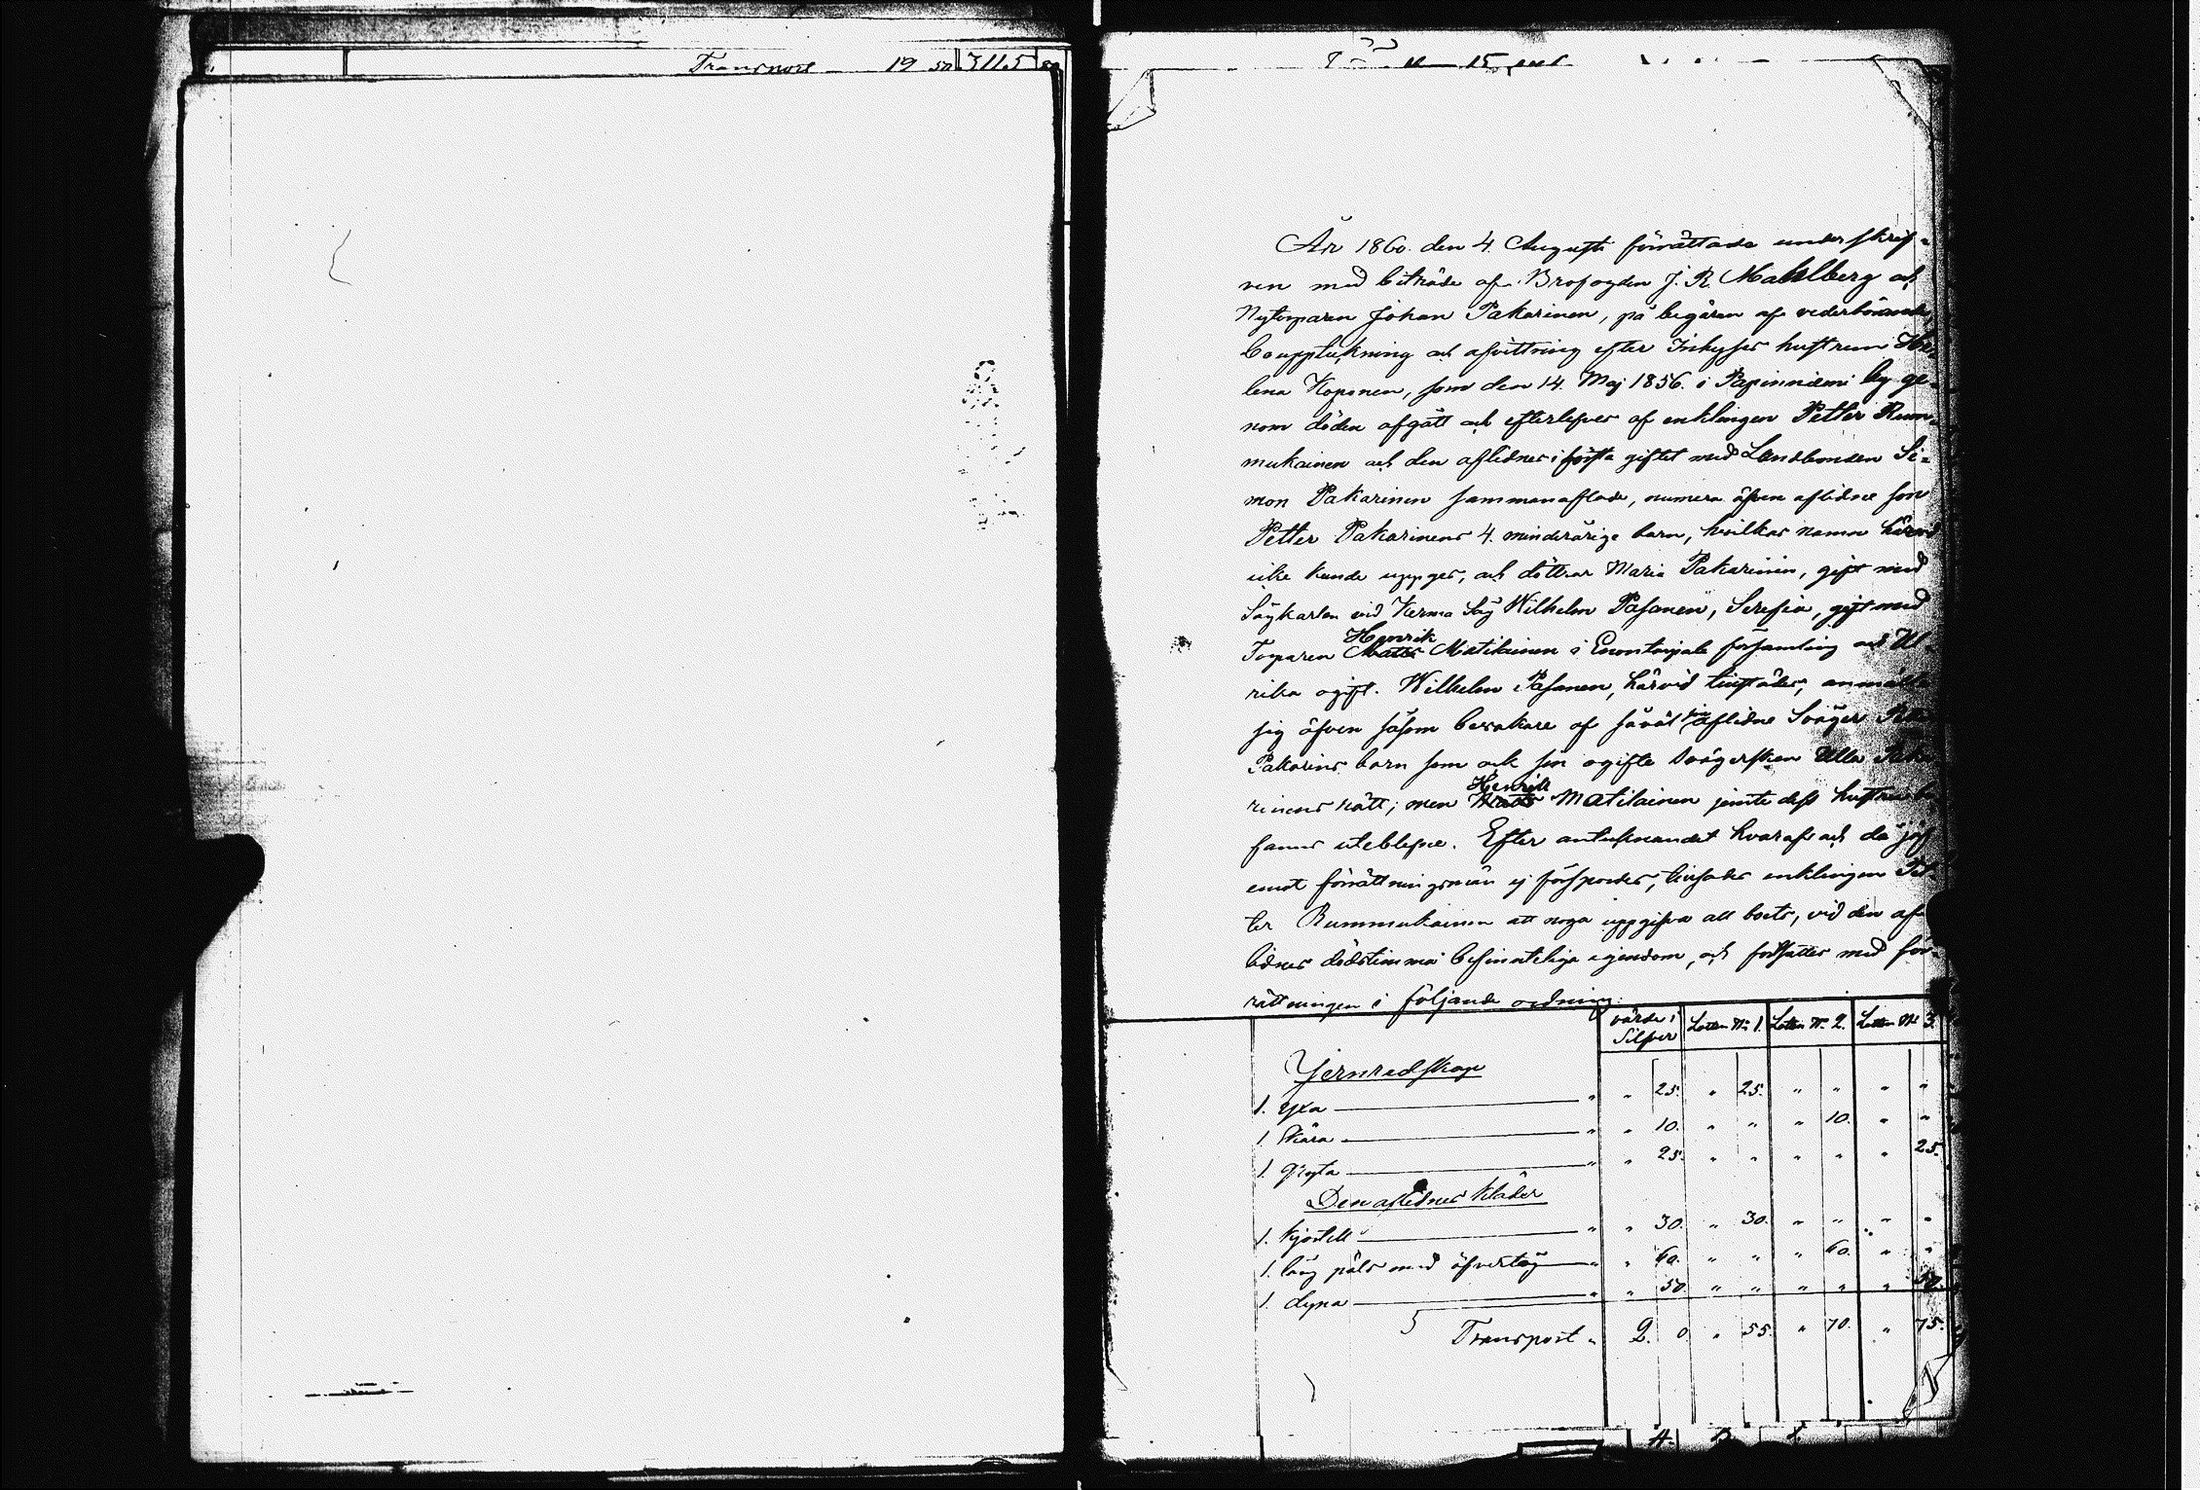 Transport 19 50 3115
År 1860. den 4. Augusti förrättade underskrif-
ven med biträde af Brofogden J. R. Mahlberg och
Nytorparen Johan Pakarinen, på begäran af vederbörande,
bouppteckning och afvittring efter Inhyses hustrun He-
lena Koponen, som den 14. Maj 1856. i Papinniemi by ge-
nom döden afgått och efterlefves af enklingen Petter Rum-
mukainen och den aflidnes i första giftet med Landbonden Si-
mon Pakarinen sammanaflade, numera äfven aflidne son
Petter Pakarinens 4. minderårige barn, hvilkas namn härvid
icke kunde uppges, och döttrar Maria Pakarinen, gift med
Sågkarlen vid Kerma Såg Wilhelm Pasanen, Serafia, gift med
Henrik
Torparen Matts Matilainen i Enontaipale församling och Ul-
rika ogift. Wilhelm Pasanen, härvid tillstädes, anmälte
sig äfven såsom bevakare af såväl sin aflidne Svåger
Pakarins barn som ock sin ogifta Svägerskan Ulla Paka-
Henrik
rinens rätt; men Matts Matilainen jemte dess hustru be-
fanns uteblefne. Efter antecknandet hvaraf och då jäf
emot förrättningsmän ej förspordes, tillsades enklingen Pet-
ter Rummukainen att noga uppgifva all boets, vid den af-
lidnes dödstimma befinteliga egendom, och fortsattes med för-
rättningen i följande ordning:
värde i Silfver Lotten N: 1. Lotten N: 2. Lotten N: 3.
Jernredskap
1. yxa " " 25. " 25. " " " "
1. skära " " 10. " " " 10. " "
1. gryta " " 25. " " " " " 25.
Den aflidnes kläder
1. kjortell " " 30. " 30. " " " "
1. lång päls med öfvertåg " " 60. " " " 60. " "
1. dyna " " 50. " " " " " 50.
Transport " 2. 0 " 55. " 70. " 75.